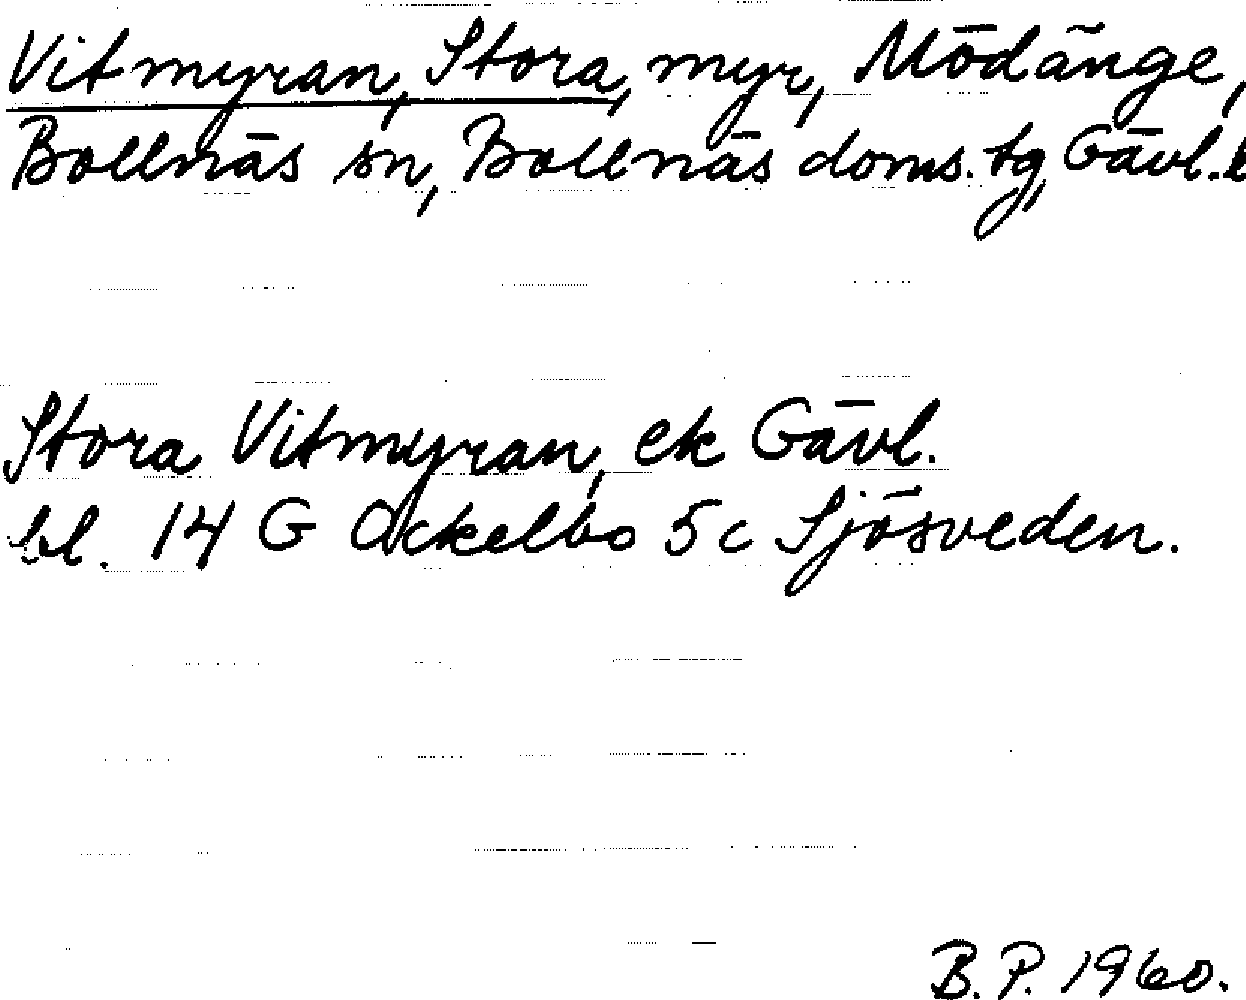 Vitmyran, Stora, myr, Mödänge,
Bollnäs sn, Bollnäs doms. tg, Gävl.
Stora Vitmyran, ek Gävl.
bl. 14 G Ockelbo 5 c Sjösveden.
B. P. 1960.